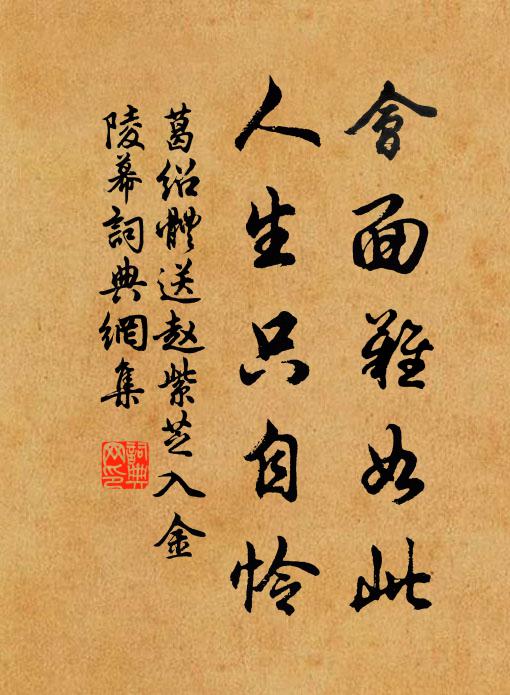 會面難如此
人生只自怜
葛绍體送赵紫芝入金
陵幕詞典網集
詞典
网印